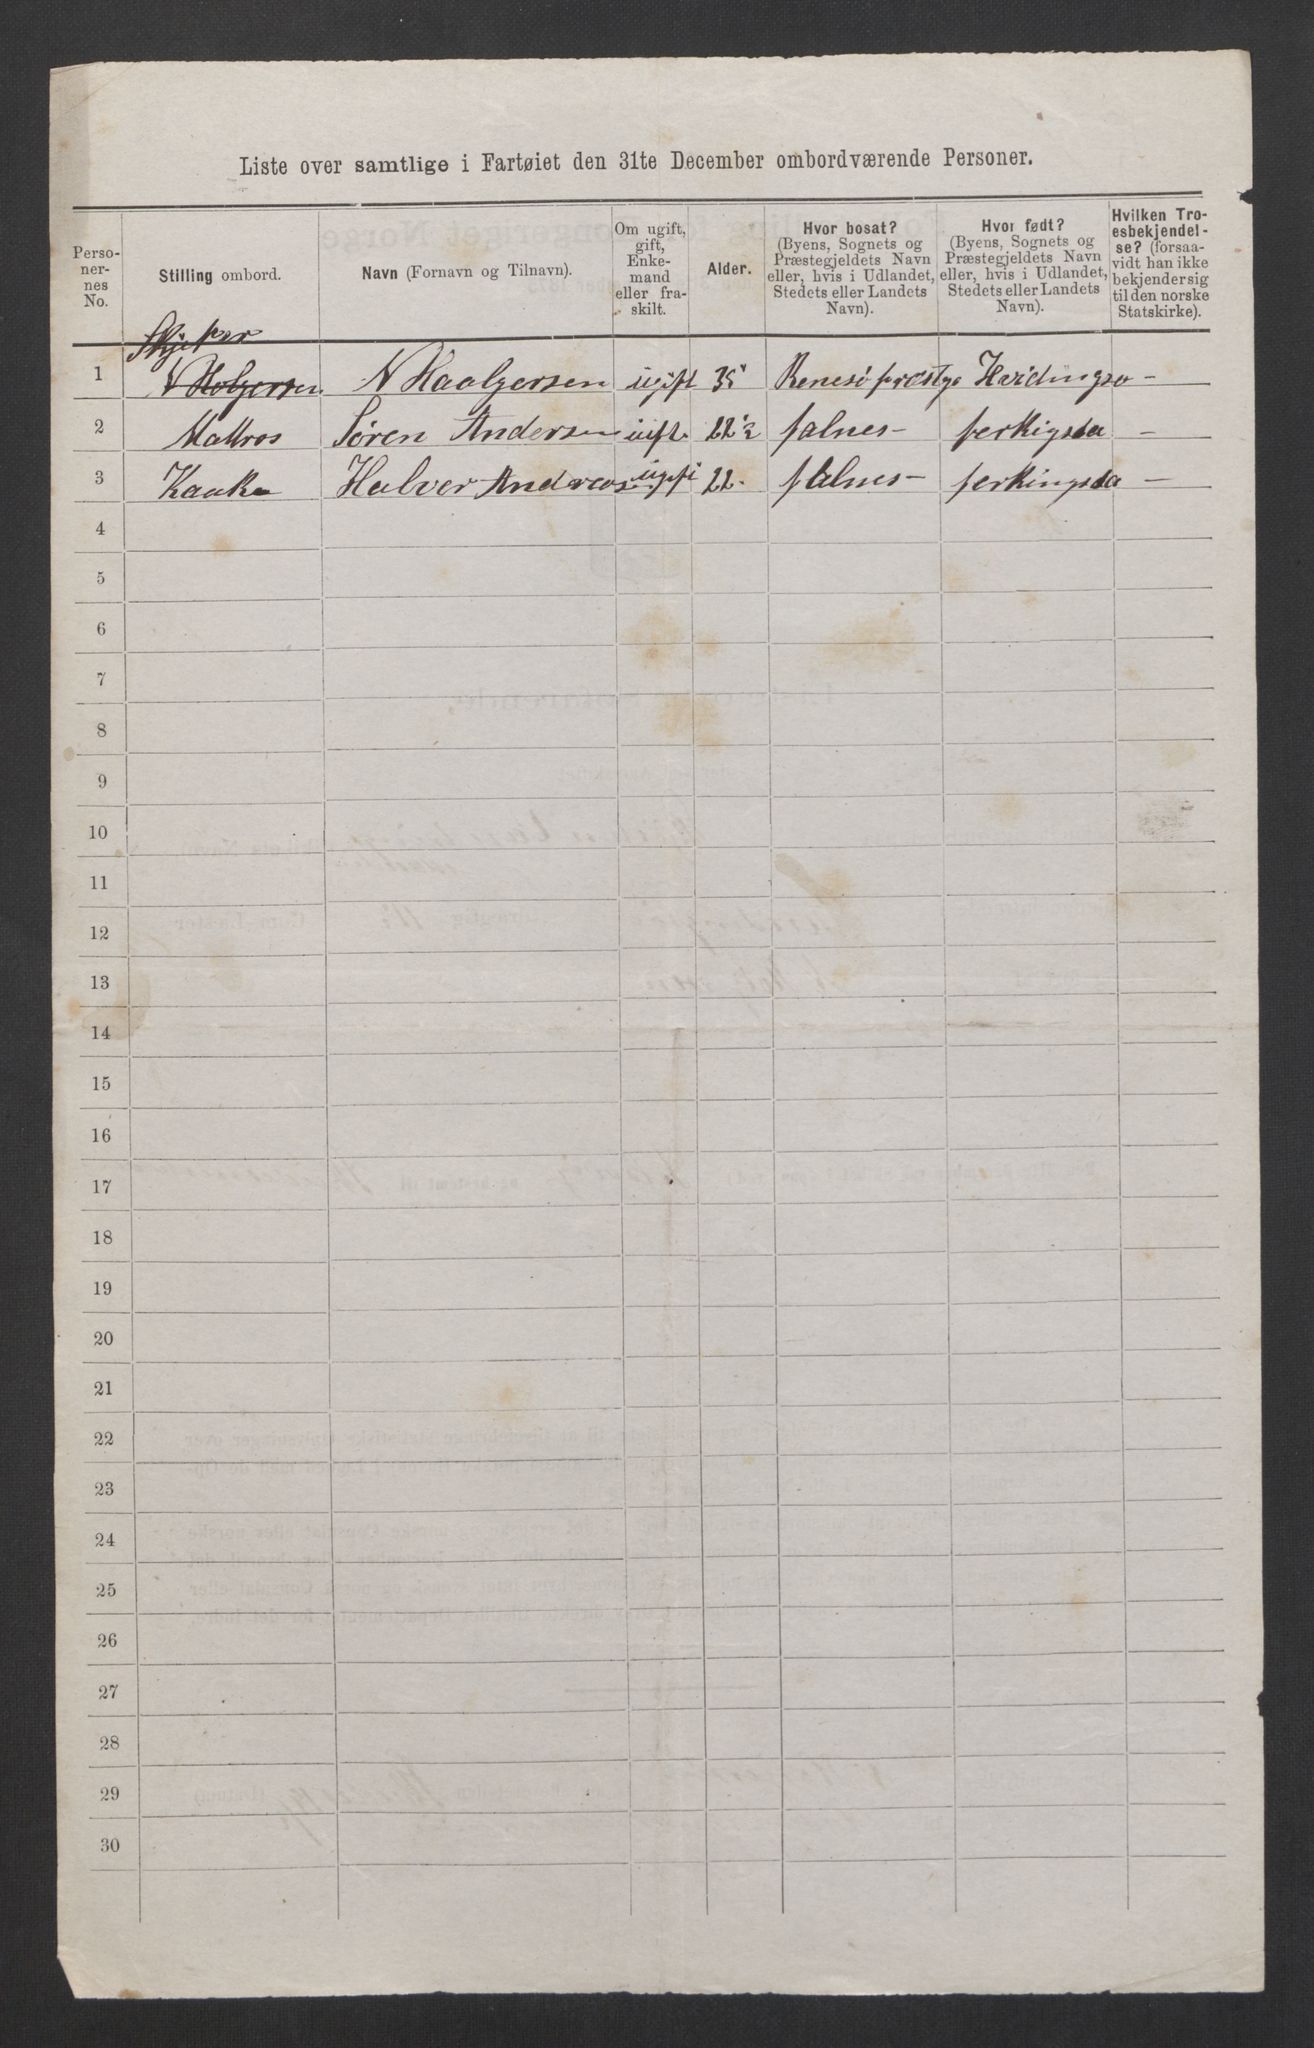 Liste over samtlige i Fartøiet den 31te December ombordværende Personer.
Perso-
ner-
nes
No.
Stilling ombord.
Navn (Fornavn og Tilnavn).
Om ugift,
gift,
Enke-
mand
eller fra-
skilt.
Alder.
Hvor bosat?
(Byens, Sognets og
Præstegjeldets Navn
eller, hvis i Udlandet,
Stedets eller Landets
Navn).
Hvor født?
(Byens, Sognets og
Præstegjeldets Navn
eller, hvis i Udlandet,
Stedets eller Landets
Navn).
Hvilken Tro-
esbekjendel-
se? (forsaa-
vidt han ikke
bekjender sig
til den norske
Statskirke).
Skjeper
1 N Holgersen N Haalgersen ugift 35 Renesö præstge Hvidingsø –
2 Matros Søren Andersen uift 22½ falnes – ferkigsta –
3 Kaake Halver Andreas ugift 22 – falnes – ferkingsta –
4
5
6
7
8
9
10
11
12
13
14
15
16
17
18
19
20
21
22
23
24
25
26
27
28
29
30